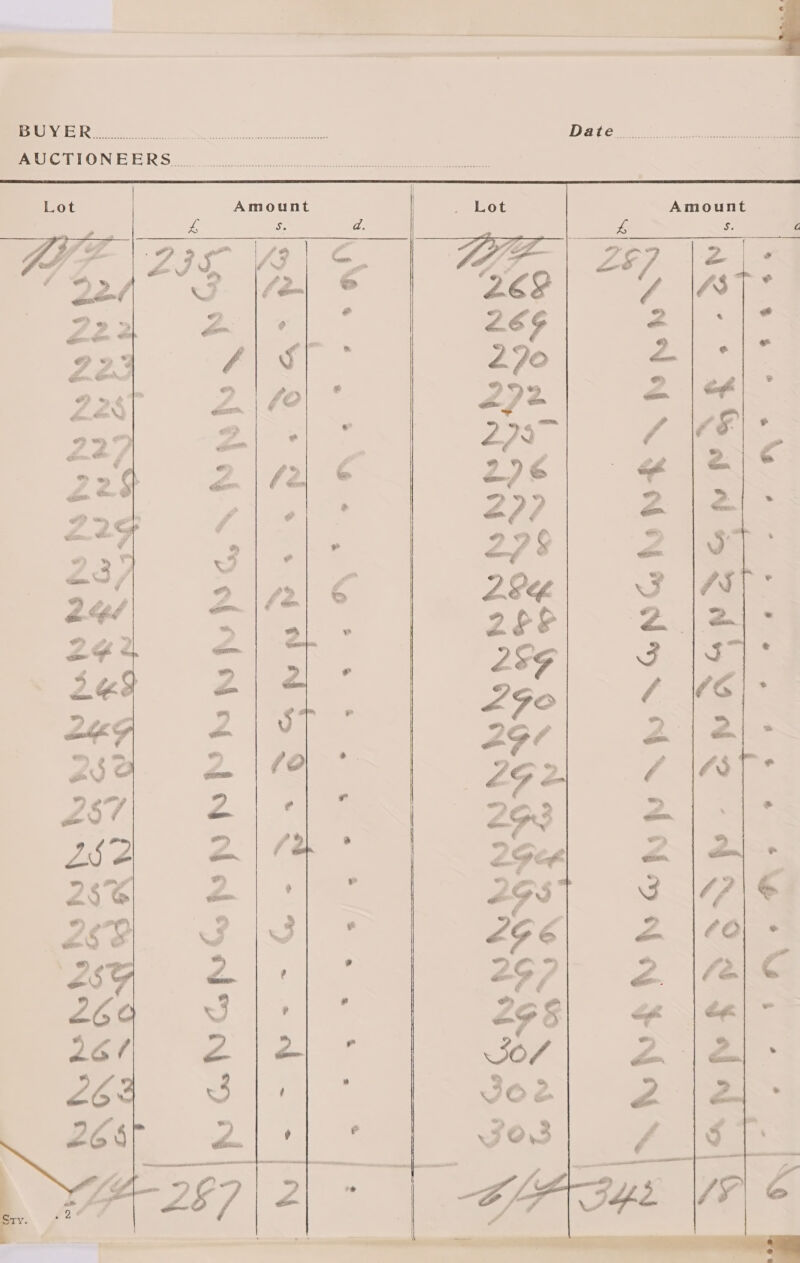 BUYER Date
AUCTIONEERS
Lot Amount
£ s. d.
B/F 235 13 6
221 3 12 6
222 2 . .
223 1 5 .
225 2 10 .
227 2 . .
228 2 12 6
229 1 . .
237 3 . .
241 2 12 6
242 2 2 .
248 2 2 .
249 2 5 .
250 2 10 .
251 2 . .
252 2 12 .
256 2 . .
258 3 3 .
259 2 . .
260 3 . .
261 2 2 .
263 3 . .
265 2 . .
C/F 287 2 .
Sty. . 2
Lot Amount
£ s. d
B/F 287 2 .
268 1 15 .
269 2 . .
270 2 . .
272 2 4 .
275 1 18 .
276 4 2 6
277 2 2 .
278 2 5 .
284 3 15 .
288 2 2 .
289 3 5 .
290 1 16 .
291 2 2 .
292 1 15 .
293 2 . .
294 2 2 .
295 3 17 6
296 2 10 .
297 2 12 6
298 4 4 .
301 2 2 .
302 2 2 .
303 1 5 .
C/F 342 18 6